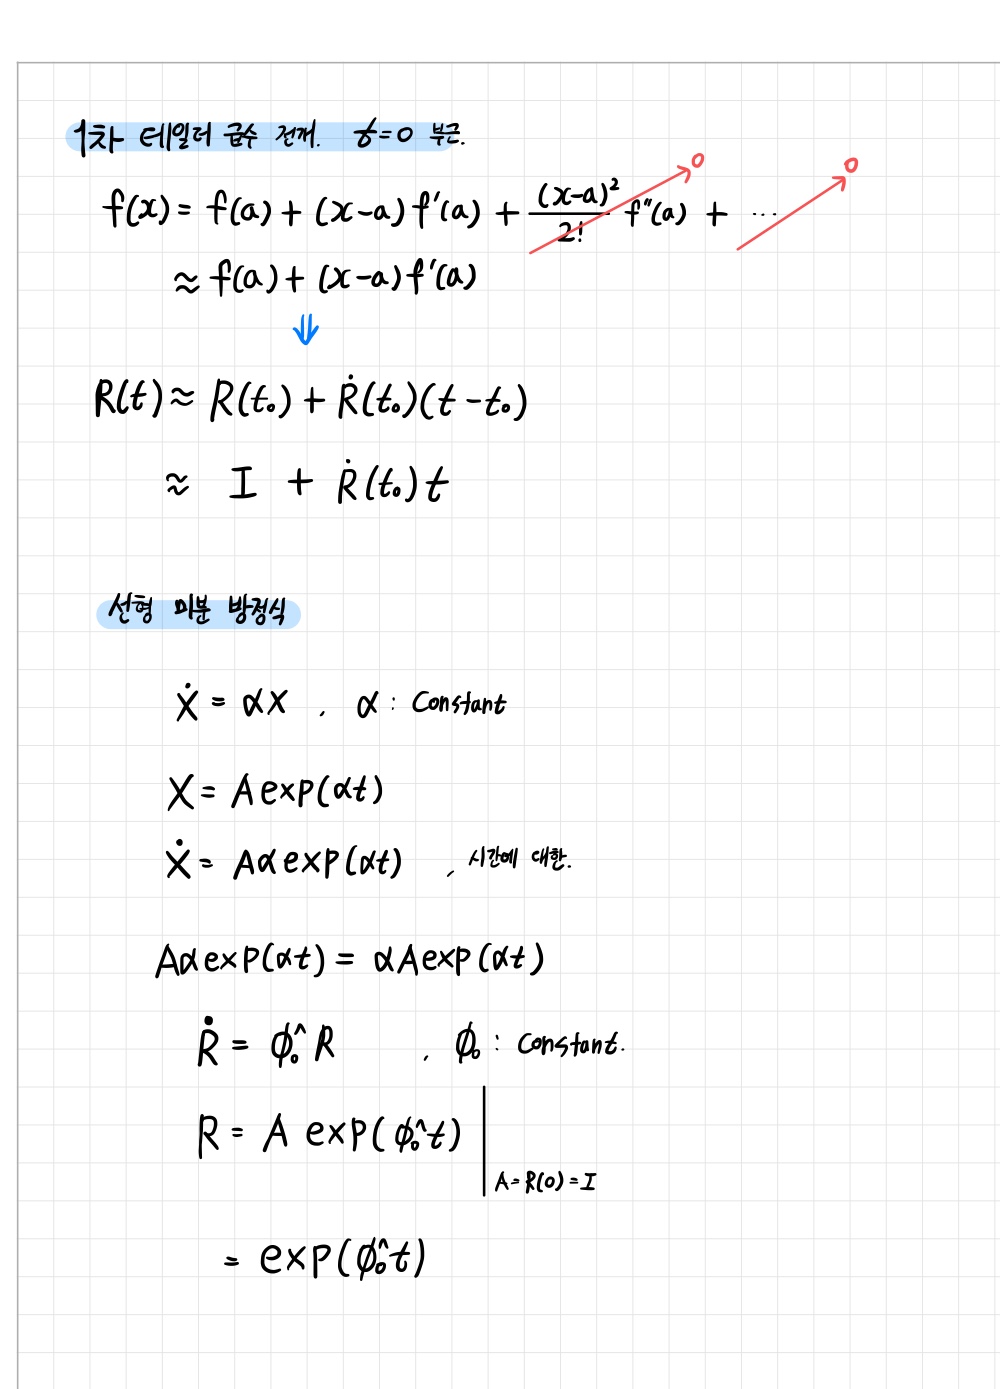 1차 테일러 급수 전개. t=0 부근.
f(x) = f(a) + (x-a) f'(a) + (x-a)²/2! f''(a) + ... 0 0
≈ f(a) + (x-a) f'(a)
⇓
R(t) ≈ R(t₀) + Ṙ(t₀)(t-t₀)
≈ I + Ṙ(t₀)t
선형 미분 방정식
ẋ = αx , α : Constant
X = A exp(αt)
Ẋ = Aα exp(αt) , 시간에 대한.
Aα exp(αt) = αA exp(αt)
Ṙ = ϕ₀^ R , ϕ₀ : Constant.
R = A exp(ϕ₀^t) |
A=R(0)=I
= exp(ϕ₀^t)